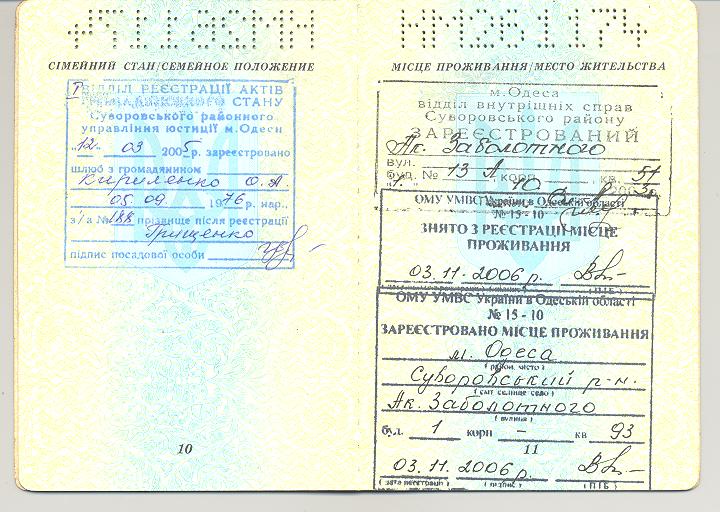 СІМЕЙНИЙ СТАН/СЕМЕЙНОЕ ПОЛОЖЕНИЕ
ВІДДІЛ РЕЄСТРАЦІЇ АКТІВ
ГРОМАДЯНСЬКОГО СТАНУ
Суворовського районного
управління юстиції м.Одеси
"12" 03 2005 р. зареєстровано
шлюб з громадянином
Кириленко О.А.
05.09. 1976 р. нар.,
з/а № 188 прізвище після реєстрації
Грищенко
підпис посадової особи
10
НМ261174
МІСЦЕ ПРОЖИВАННЯ/МЕСТО ЖИТЕЛЬСТВА
м.Одеса
відділ внутрішніх справ
Суворовського району
ЗАРЕЄСТРОВАНИЙ
Ак. Заболотного
вул.
буд. № 13 А корп. кв. 51
10
ОМУ УМВС України в Одеській області
№ 15 - 10
ЗНЯТО З РЕЄСТРАЦІЇ МІСЦЕ
ПРОЖИВАННЯ
03.11.2006 р.
ОМУ УМВС України в Одеській області
№ 15 - 10
ЗАРЕЄСТРОВАНО МІСЦЕ ПРОЖИВАННЯ
м. Одеса
(район, місто)
Суворовський р-н.
(смт селище село)
Ак. Заболотного
(вулиця)
буд. 1 корп – кв 93
11
03.11.2006р.
(дата реєстрації) (підпис) (ПІБ)